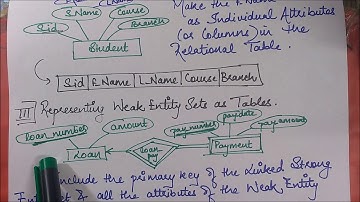 S.Name
Course
Make the F.Name
as Individual Attributes
S.id
Branch
(or Columns) in the
Student
Relational Table.
S.id F.Name L.Name Course Branch
III Representing Weak Entity Sets as Tables.
loan_number
amount
pay_number
paydate
pay.amount
Loan
loan
pay
Payment
Include the primary key of the Linked Strong
& all the attributes of the Weak Entity